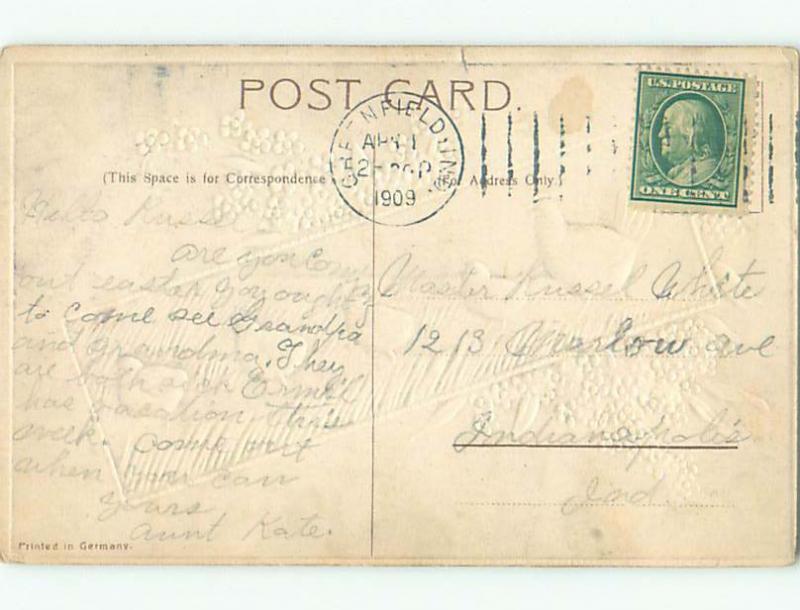 POST CARD.
GREENFIELD IND.
1909
U.S. POSTAGE
ONE CENT
(This Space is for Correspondence
(For Address Only.)
Hello Russel
are you Com
out easter you ought
to come see Grandpa
and grandma. They
are both sick
has vacation this
week. Come out
when you can
yours
aunt Kate.
Master Russel White
1213 ave
Indianapolis
Ind.
Printed in Germany.